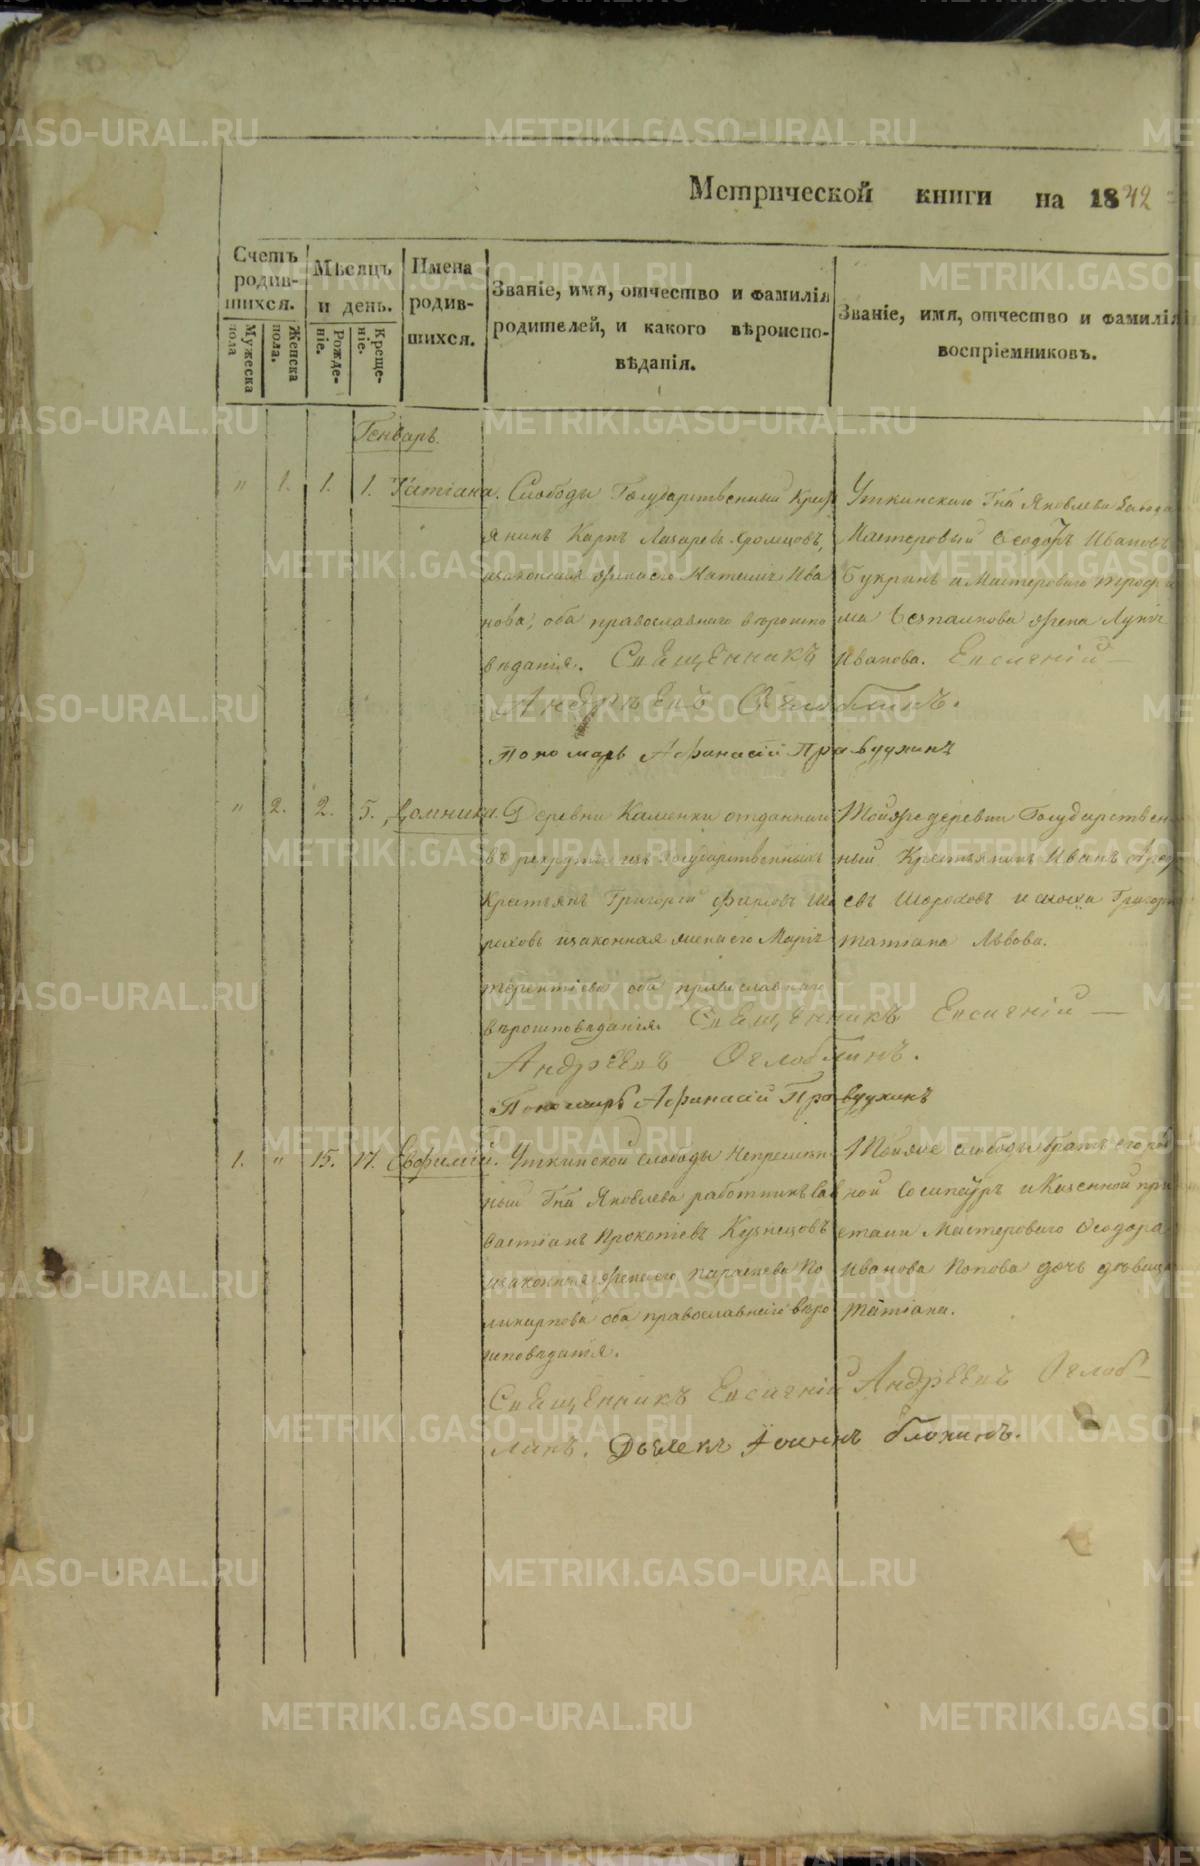 Метрической книги на 1842
Счетъ родив- шихся.
Мужеска пола
Женска пола.
Мѣсяцъ и день.
Рожде- ніе.
Креще- ніе.
Имена родив- шихся.
Званіе, имя, отчество и фамилія
родителей, и какого вѣроиспо-
вѣданія.
Званіе, имя, отчество и фамилія
воспріемниковъ.
Генварь.
" 1. 1. 1. Татіана.
Слободы Государственный Крестъ
янинъ Карпъ Лазаревъ
изаконная жена его Ива
нова, оба православнаго вѣроиспо
вѣданія. Священникъ Евсигній
Андрѣевъ Оглоблинъ.
Пономарь Афанасій Правдухинъ
Уткинскаго Гна Яковлева Завода
Мастеровый Ѳеодоръ Ивановъ
Букринъ и Мастероваго Трофи
ма жена
Иванова.
" 2. 2. 5. Домника.
Деревни Каменки отданный
въ рекруты изъ государственныхъ
Крестьянъ Григорій Фирсовъ Шо
роховъ изаконная жена его Марія
Терентіева оба православнаго
вѣроисповѣданія. Священникъ Евсигній
Андрѣевъ Оглоблинъ.
Пономарь Афанасій Правдухинъ
Тойже деревни Государствен
ный Крестьянинъ Иванъ
евъ Шороховъ и Григорія
Татіана Львова.
1. " 15. 17. Евфимій.
Уткинской слободы Непремѣн
ный Гна Яковлева работникъ Сав
вастіанъ Прокопіевъ Кузнецовъ
изаконная жена его Параскева По
ликарпова оба православнаго вѣро
исповѣданія.
Священникъ Евсигній Андрѣевъ Оглоб
линъ. Дьячекъ Іоаннъ Блохинъ.
Тойже слободы братъ его род
ной и Казенной при
стани Мастероваго Ѳеодора
Иванова Попова дочь дѣвица
Татіана.
METRIKI.GASO-URAL.RU